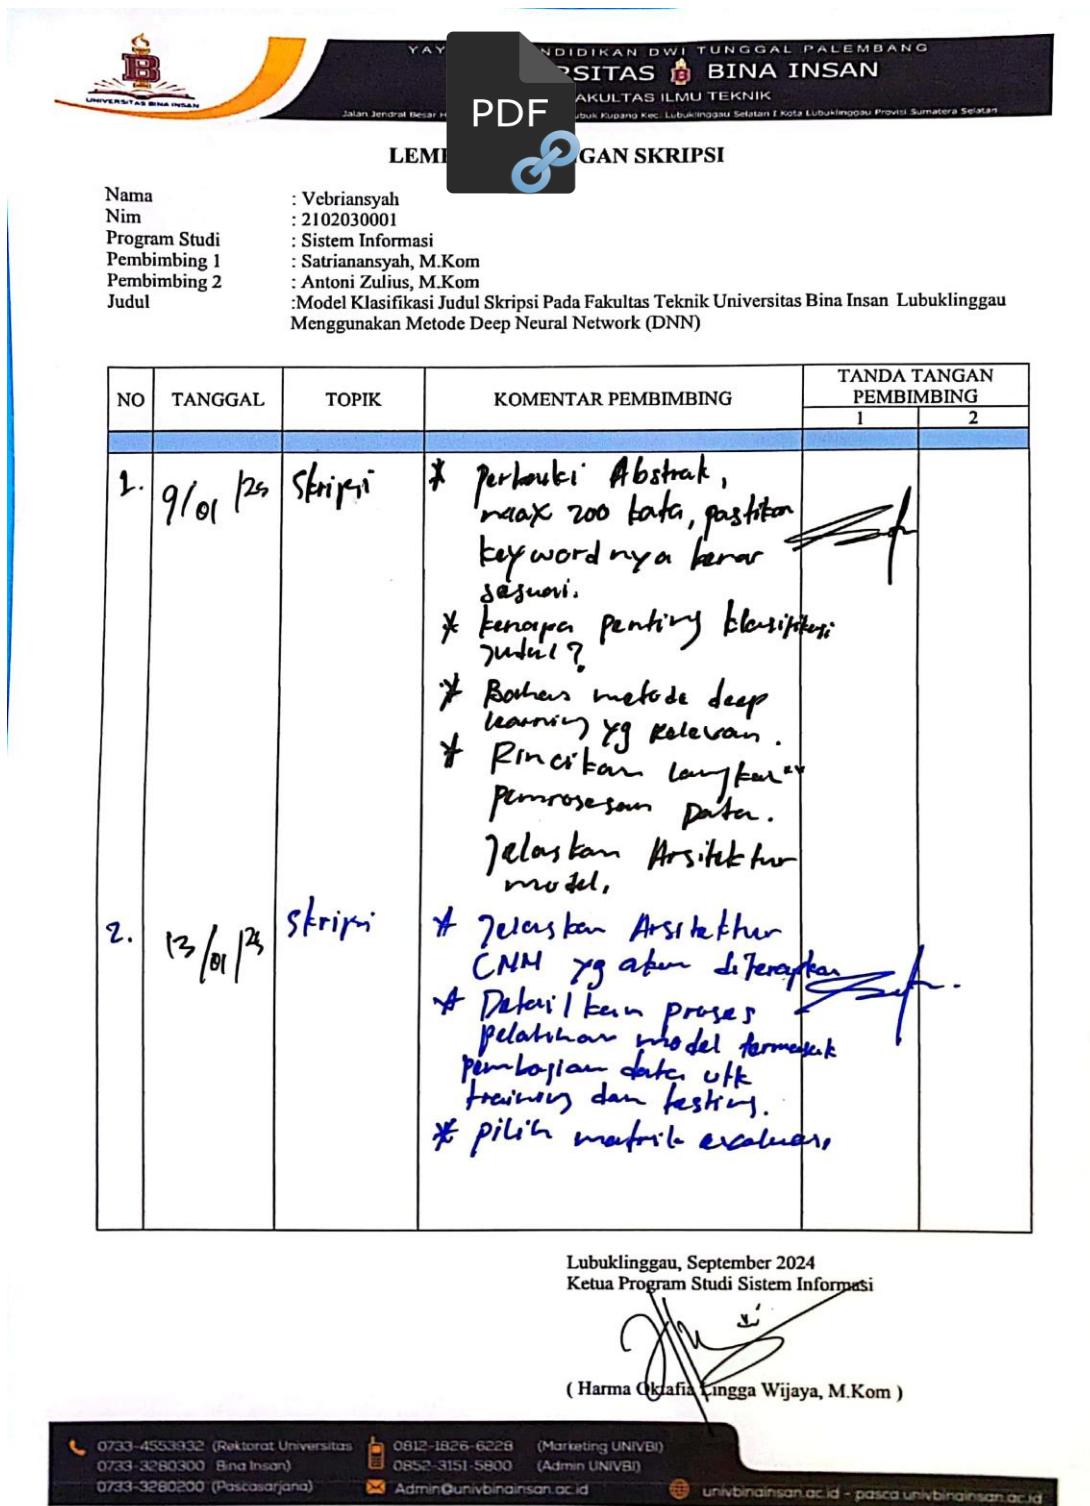 YAY NDIDIKAN DWI TUNGGAL PALEMBANG
RSITAS BINA INSAN
AKULTAS ILMU TEKNIK
Jalan Jendral Besar H ubuk Kupang Kec. Lubuklinggau Selatan I Kota Lubuklinggau Provisi Sumatera Selatan
UNIVERSITAS BINA INSAN
PDF
LEMB NGAN SKRIPSI
Nama : Vebriansyah
Nim : 2102030001
Program Studi : Sistem Informasi
Pembimbing 1 : Satrianansyah, M.Kom
Pembimbing 2 : Antoni Zulius, M.Kom
Judul :Model Klasifikasi Judul Skripsi Pada Fakultas Teknik Universitas Bina Insan Lubuklinggau
Menggunakan Metode Deep Neural Network (DNN)
NO TANGGAL TOPIK KOMENTAR PEMBIMBING TANDA TANGAN PEMBIMBING
1 2
1. 9/01/25 Skripsi * Perbaiki Abstrak,
max 200 kata, pastikan
keywordnya benar
sesuai.
* kenapa penting klasifikasi
judul?
* Bahas metode deep
learning yg relevan.
* Rincikan langkah"
pemrosesan Data.
Jelaskan Arsitektur
model.
2. 13/01/25 Skripsi * Jelaskan Arsitektur
CNN yg akan diterapkan
* Detailkan proses
pelatihan model termasuk
pembagian data utk
training dan testing.
* pilih matrik evaluasi.
Lubuklinggau, September 2024
Ketua Program Studi Sistem Informasi
( Harma Oktafia Lingga Wijaya, M.Kom )
0733-4553932 (Rektorat Universitas
0733-3280300 Bina Insan)
0733-3280200 (Pascasarjana)
0812-1826-6228 (Marketing UNIVBI)
0852-3151-5800 (Admin UNIVBI)
Admin@univbinainsan.ac.id
univbinainsan.ac.id - pasca.univbinainsan.ac.id